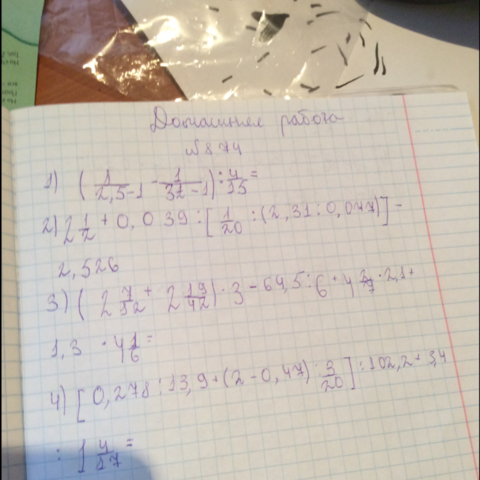 Домашнее работа
№ 874
1) (1/2,5-1 - 1/3 1/2 - 1) : 4/35 =
2) 2 1/2 + 0,039 : [1/20 : (2,31 : 0,077)] -
2,526
3) (2 7/32 + 2 19/42) · 3 - 64,5 : 6 + 4 2/7 · 2,1 +
1,3 · 4 1/6 =
4) [0,278 : 13,9 + (2 - 0,47) : 3/20] : 102,2 + 3,4
: 1 4/27 =